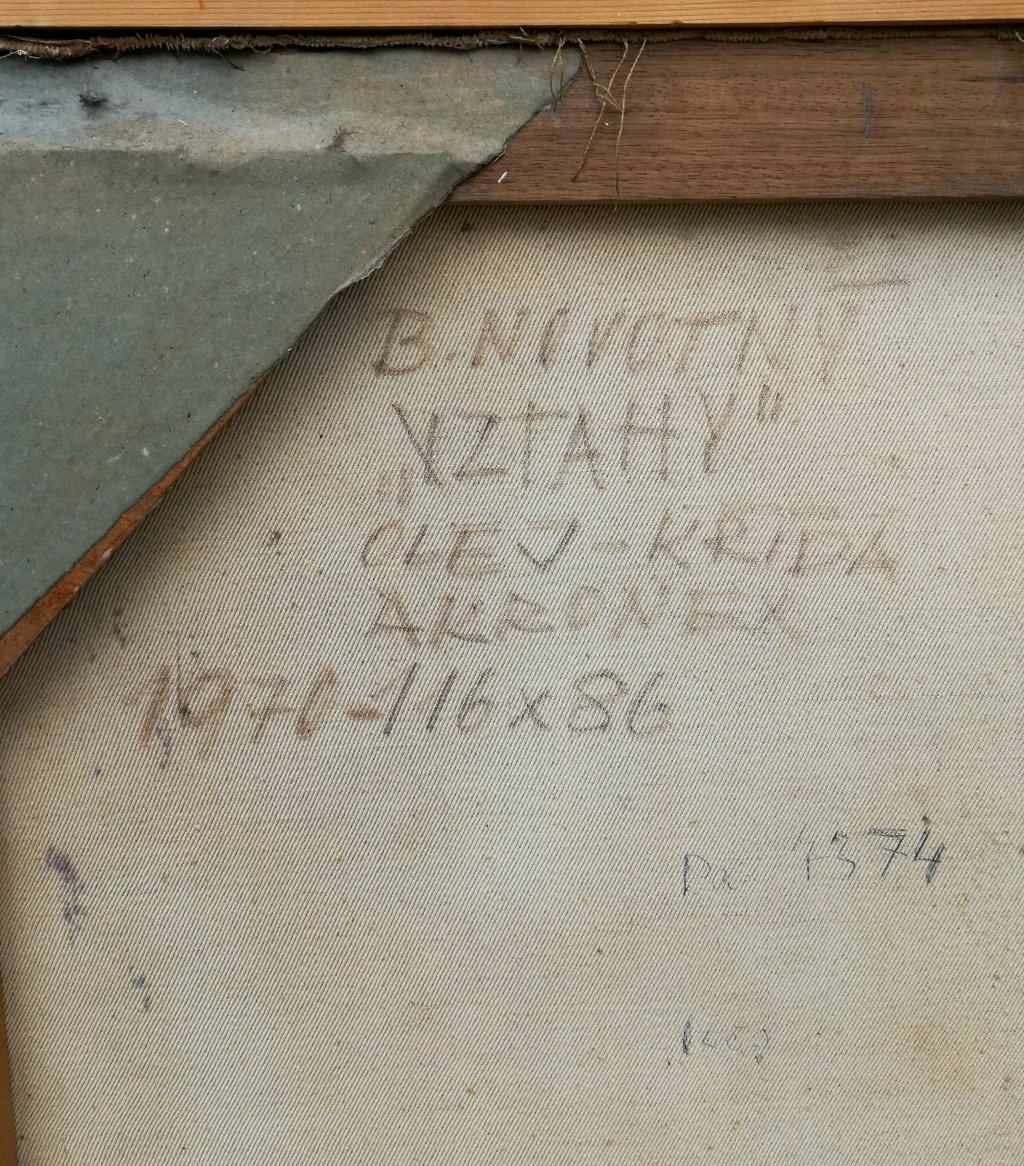 B. NOVOTNÝ
„VZTAHY"
OLEJ - KŘÍDA
AKRONEX
1970 - 116 x 86
7374